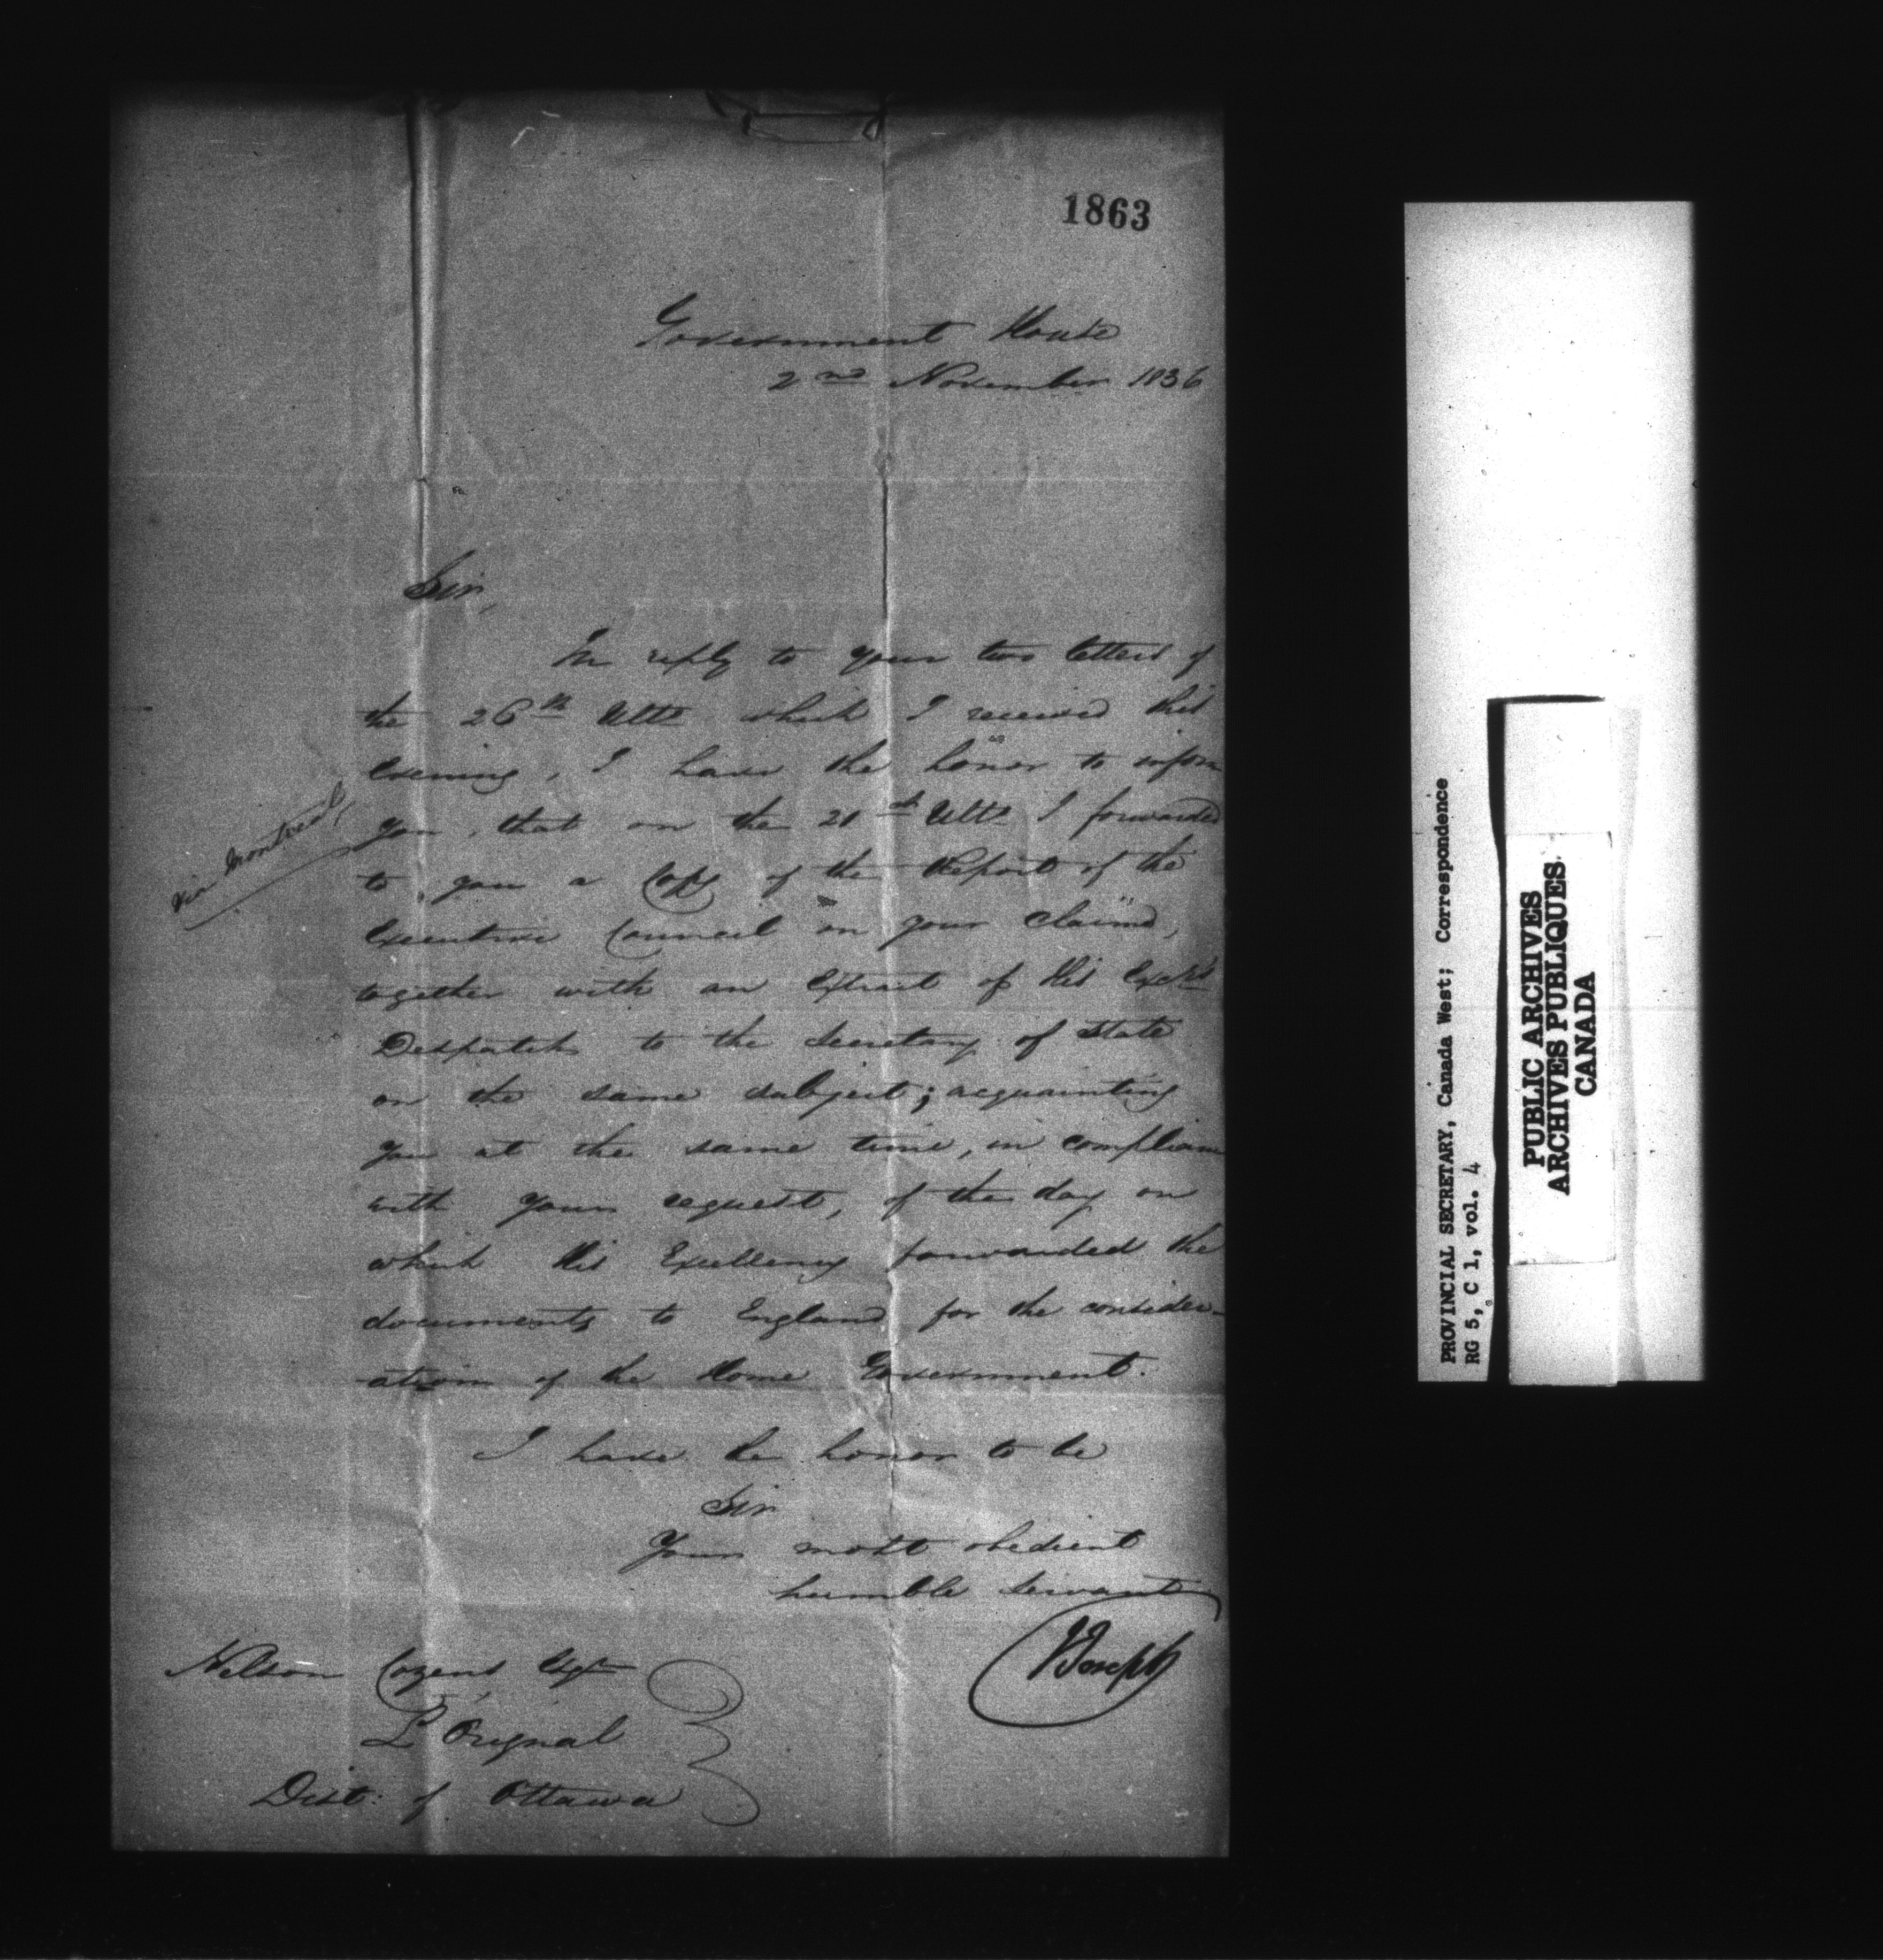 1863
Government House
2nd November 1836
Sir,
In reply to your two letters of
the 26th Ulto which I received this
Evening, I have the honor to inform
you, that on the 21st Ulto I forwarded
via Montreal,
to, you a Copy of the Report of the
Executive Council on your claims,
together with an Extract of His Excy's
Despatch to the Secretary of State
on the same subject; acquainting
you at the same time, in complian
with your request, of the day on
which His Excellency forwarded the
documents to England for the consider-
ation of the Home Government.
I have the honor to be
Sir
Your most obedient
humble Servant
J Joseph
Nelson Cozens Esqre
L'Orignal
Dist: of Ottawa
PROVINCIAL SECRETARY, Canada West; Correspondence
RG 5, C 1, vol. 4
PUBLIC ARCHIVES
ARCHIVES PUBLIQUES
CANADA